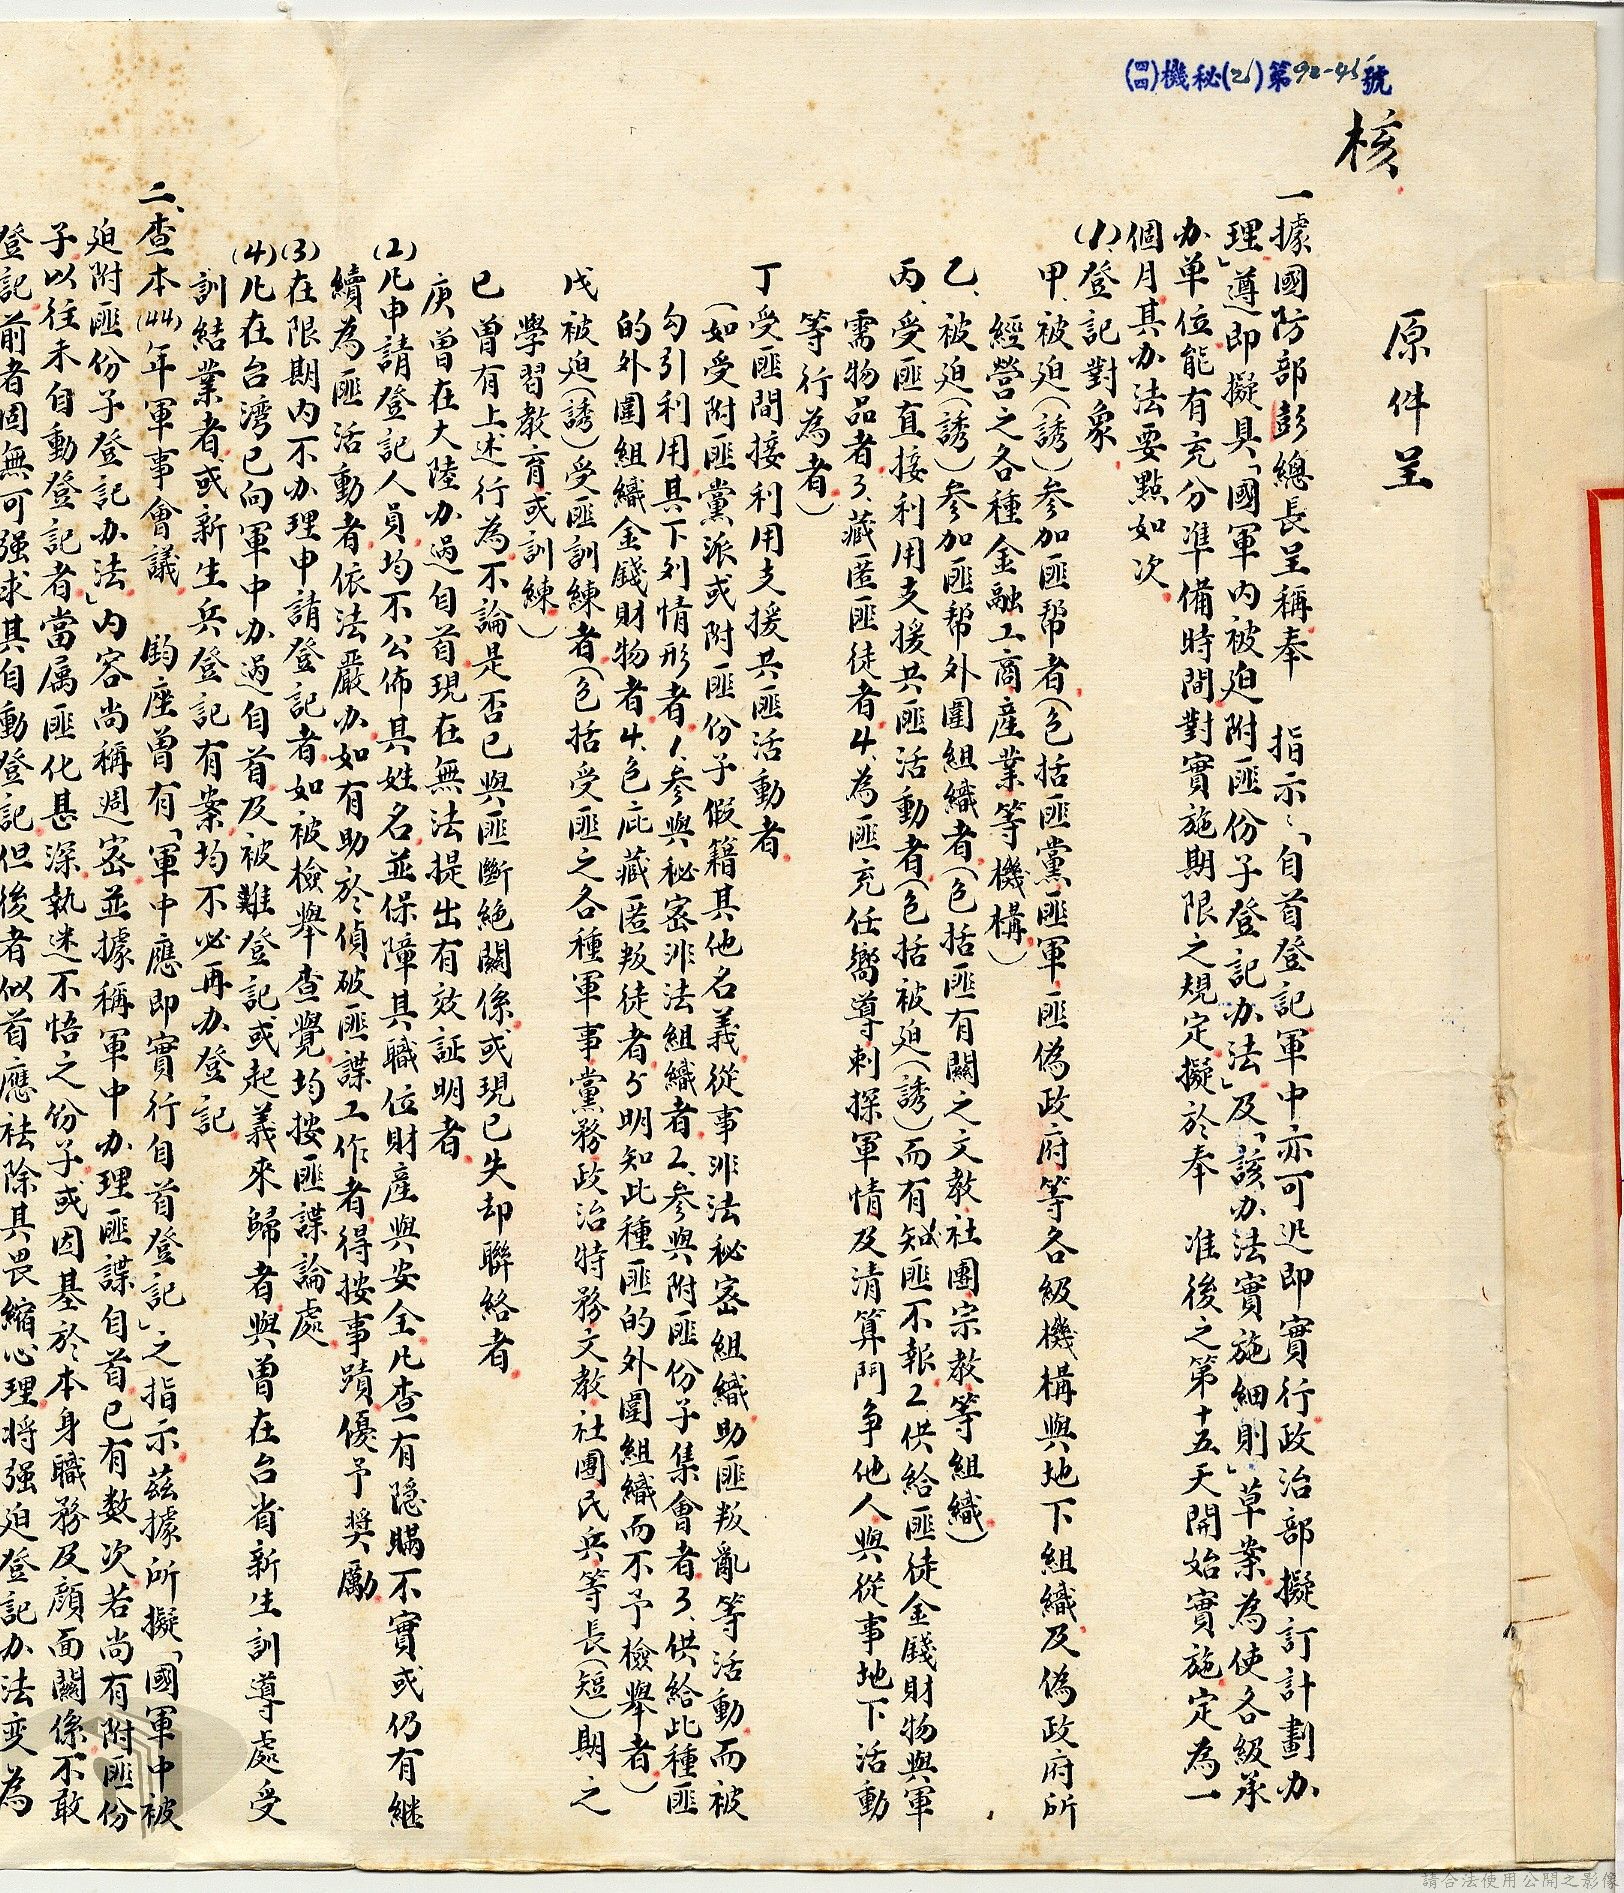 (四四)機秘(乙)第92-45號
核
原件呈
一據國防部彭總長呈稱奉　指示：「自首登記軍中亦可迅即實行政治部擬訂計劃办
理」遵即擬具「國軍內被迫附匪份子登記办法」及「該办法實施細則」草案為使各級承
办单位能有充分準備時間對實施期限之規定擬於奉　准後之第十五天開始實施定為一
個月其办法要點如次
(1)、登記對象
甲、被迫(誘)參加匪帮者(包括匪黨匪軍匪偽政府等各級機構與地下組織及偽政府所
經營之各種金融工商產業等機構)
乙、被迫(誘)參加匪帮外圍組織者(包括匪有關之文教社團宗教等組織)
丙、受匪直接利用支援共匪活動者(包括被迫(誘)而有知匪不報2.供給匪徒金錢財物與軍
需物品者3、藏匿匪徒者4、為匪充任嚮導刺探軍情及清算鬥争他人與從事地下活動
等行為者)
丁受匪間接利用支援共匪活動者
(如受附匪黨派或附匪份子假籍其他名義從事非法秘密組織助匪叛亂等活動而被
勾引利用其下列情形者1、參與秘密非法組織者2、參與附匪份子集會者3、供給此種匪
的外圍組織金錢財物者4、包庇藏匿叛徒者5明知此種匪的外圍組織而不予檢舉者)
戊被迫(誘)受匪訓練者(包括受匪之各種軍事黨務政治特務文教社團民兵等長(短)期之
學習教育或訓練)
已曾有上述行為不論是否已與匪斷絕關係或現已失却聯絡者
庚曾在大陸办過自首現在無法提出有效証明者
(2)凡申請登記人員均不公佈其姓名並保障其職位財產與安全凡查有隐瞞不實或仍有継
續為匪活動者依法嚴办如有助於偵破匪諜工作者得按事蹟優予獎勵
(3)在限期內不办理申請登記者如被檢舉查覺均按匪諜論處
(4)凡在台湾已向軍中办過自首及被難登記或起義來歸者與曾在台省新生訓導處受
訓結業者或新生兵登記有案均不必再办登記
二、查本(44)年軍事會議　鈞座曾有「軍中應即實行自首登記」之指示茲據所擬「國軍中被
迫附匪份子登記办法」內容尚稱週密並據稱軍中办理匪諜自首已有数次若尚有附匪份
子以往未自動登記者當属匪化甚深執迷不悟之份子或因基於本身職務及顏面關係不敢
登記前者固無可强求其自動登記但後者似首應祛除其畏縮心理将强迫登記办法变為
請合法使用公開之影像